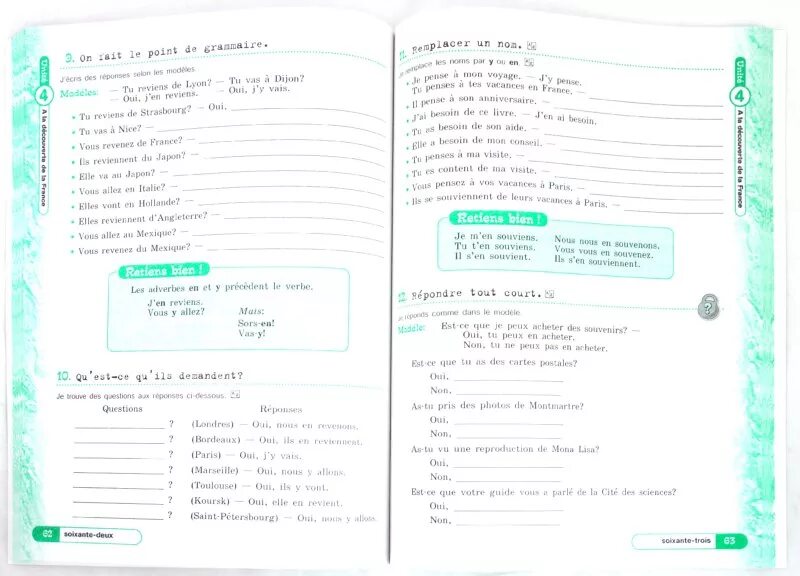 Unité
4
A la découverte de la France
9. On fait le point de grammaire.
J'écris des réponses selon les modèles.
Modèles: — Tu reviens de Lyon? — Tu vas à Dijon?
— Oui, j'en reviens. — Oui, j'y vais.
• Tu reviens de Strasbourg? — Oui,
• Tu vas à Nice? —
• Vous revenez de France? —
• Ils reviennent du Japon? —
• Elle va au Japon? —
• Vous allez en Italie? —
• Elles vont en Hollande? —
• Elles reviennent d'Angleterre? —
• Vous allez au Mexique? —
• Vous revenez du Mexique? —
Retiens bien !
Les adverbes en et y précèdent le verbe.
J'en reviens.
Vous y allez?
Mais:
Sors-en!
Vas-y!
10. Qu'est-ce qu'ils demandent?
Je trouve des questions aux réponses ci-dessous.
Questions Réponses
? (Londres) — Oui, nous en revenons.
? (Bordeaux) — Oui, ils en reviennent.
? (Paris) — Oui, j'y vais.
? (Marseille) — Oui, nous y allons.
? (Toulouse) — Oui, ils y vont.
? (Koursk) — Oui, elle en revient.
? (Saint-Pétersbourg) — Oui, nous y allons.
62 soixante-deux
11. Remplacer un nom.
Je remplace les noms par y ou en
• Je pense à mon voyage. — J'y pense.
Tu penses à tes vacances en France. —
• Il pense à son anniversaire. —
• J'ai besoin de ce livre. — J'en ai besoin.
• Tu as besoin de son aide. —
• Elle a besoin de mon conseil. —
• Tu penses à ma visite. —
• Tu es content de ma visite. —
• Vous pensez à vos vacances à Paris. —
• Ils se souviennent de leurs vacances à Paris. —
Retiens bien !
Je m'en souviens. Nous nous en souvenons.
Tu t'en souviens. Vous vous en souvenez.
Il s'en souvient. Ils s'en souviennent.
12. Répondre tout court.
Je réponds comme dans le modèle.
?
Modèle: Est-ce que je peux acheter des souvenirs? —
Oui, tu peux en acheter.
Non, tu ne peux pas en acheter.
Est-ce que tu as des cartes postales?
Oui,
Non,
As-tu pris des photos de Montmartre?
Oui,
Non,
As-tu vu une reproduction de Mona Lisa?
Oui,
Non,
Est-ce que votre guide vous a parlé de la Cité des sciences?
Oui,
Non,
soixante-trois 63
Unité
4
A la découverte de la France